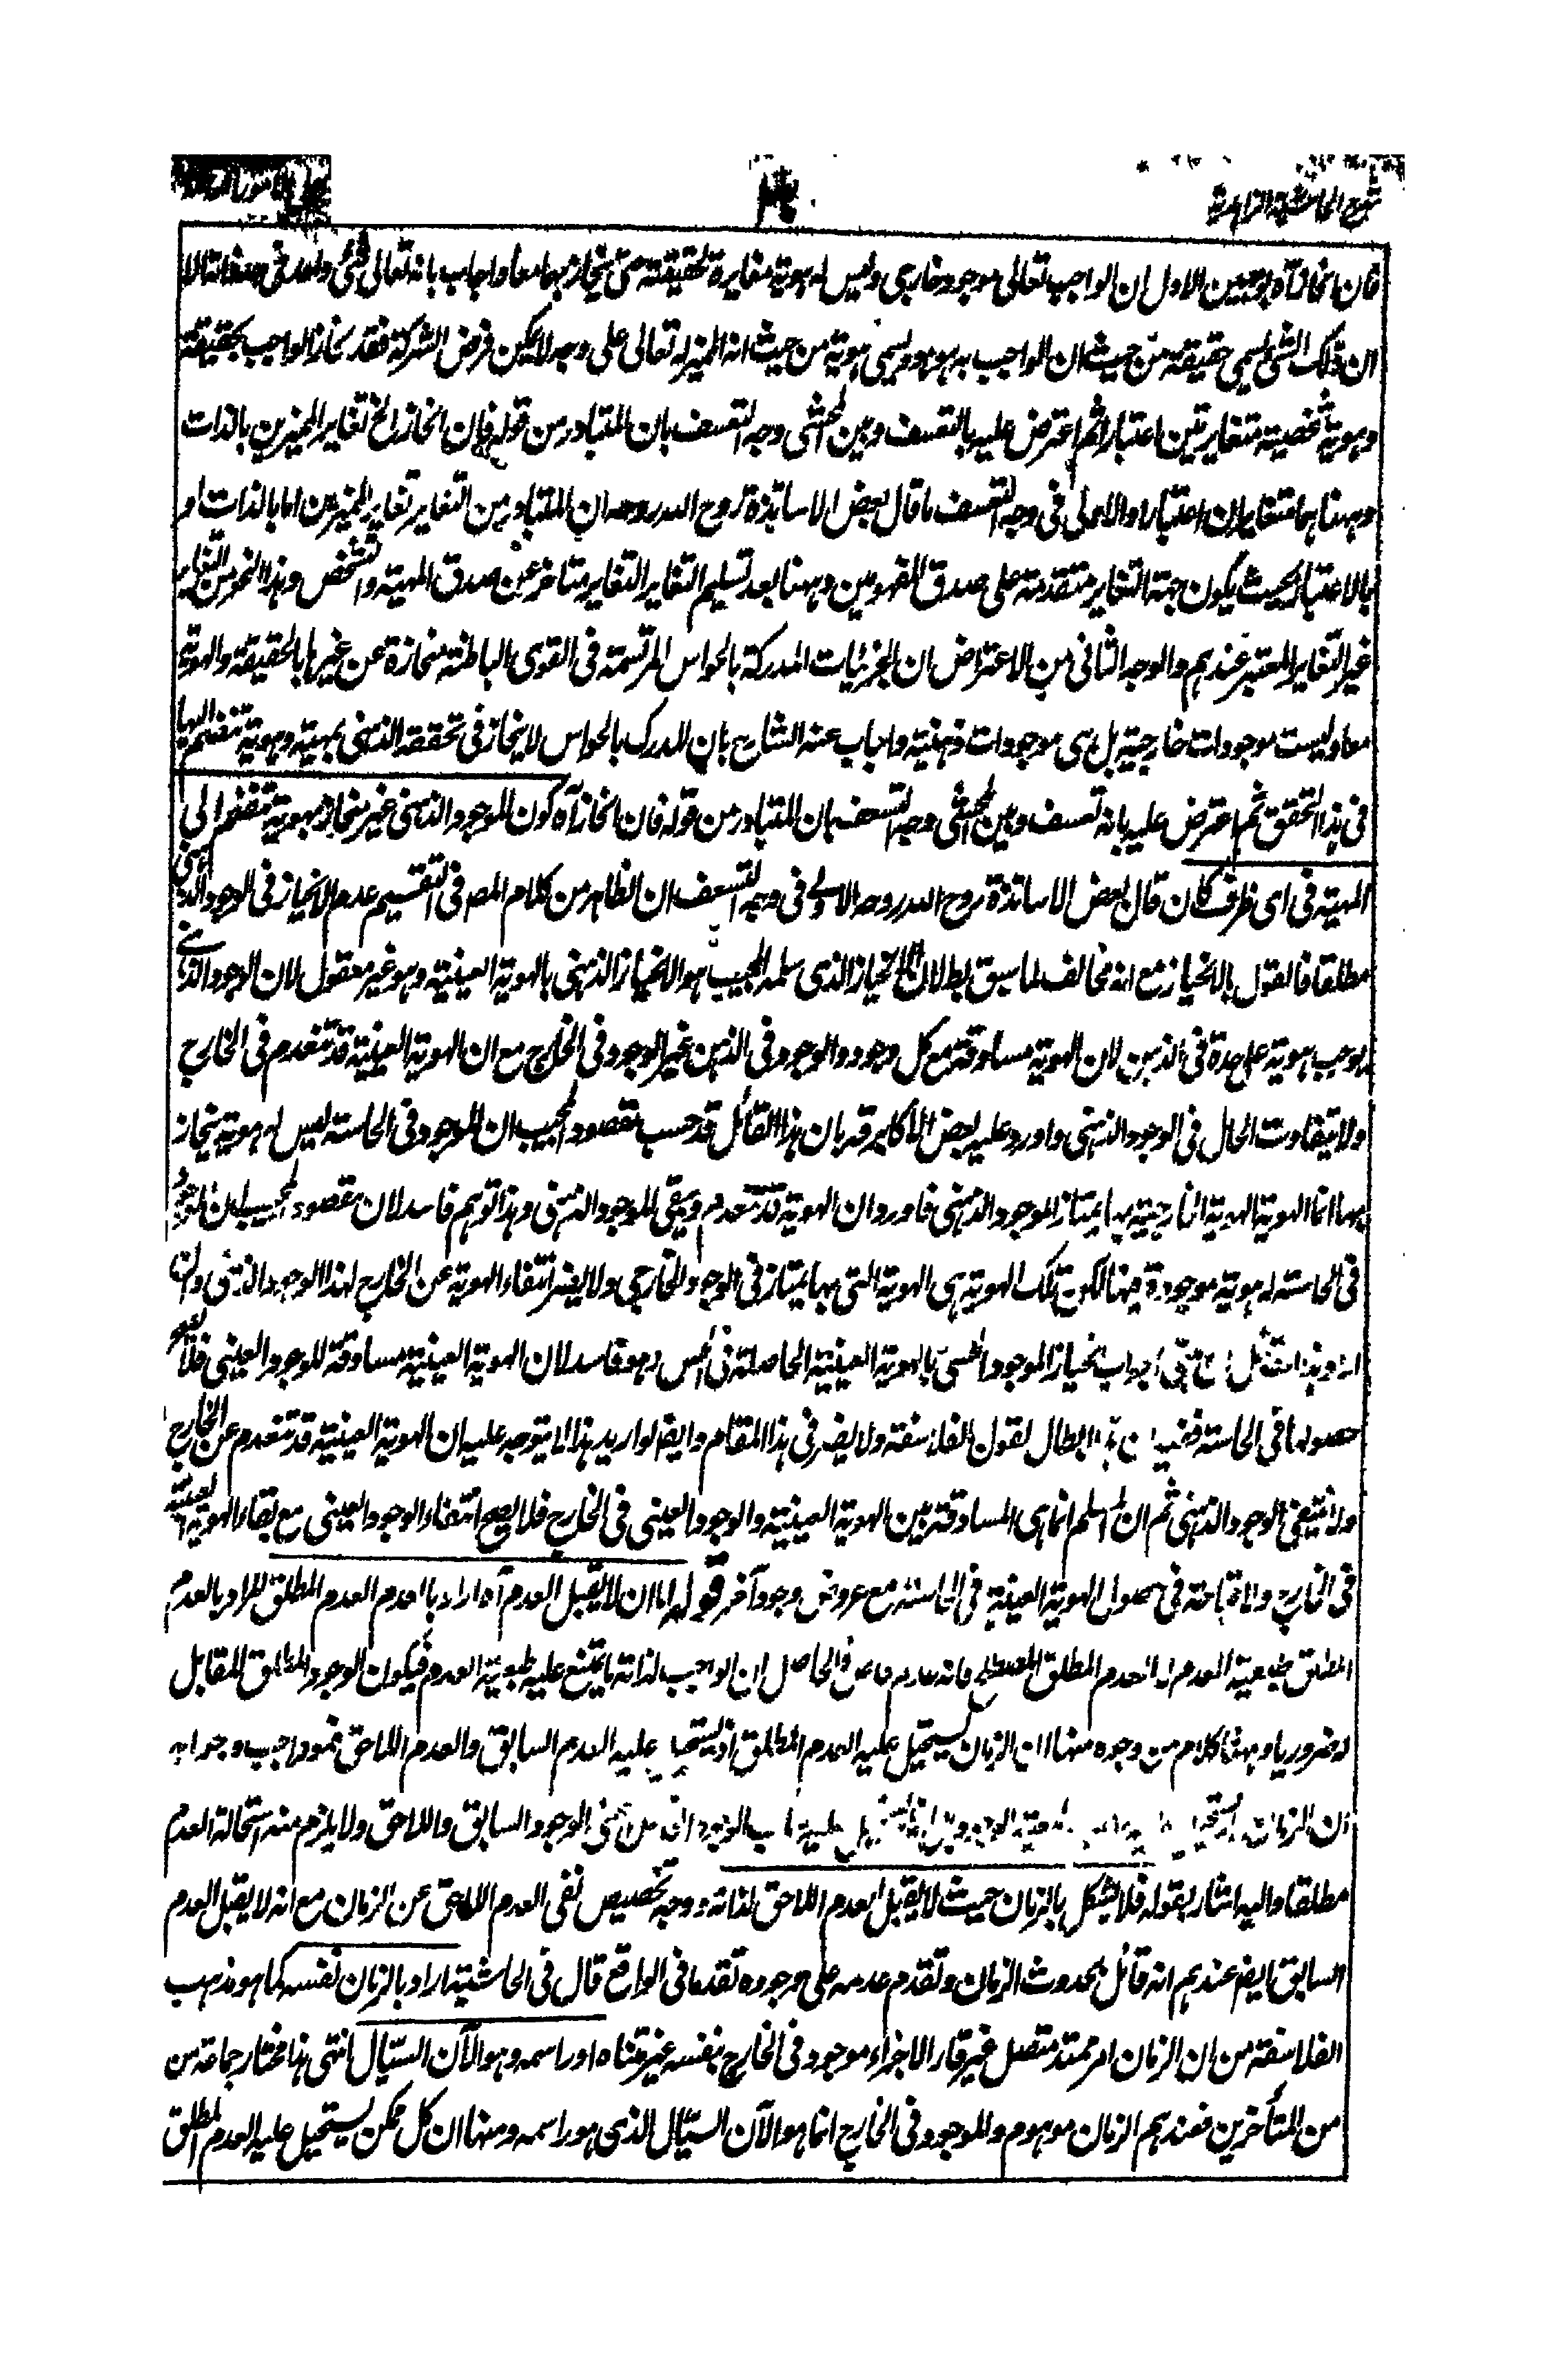 شرح الحاشية الزاهدية
فان انحاز آه بوجهين الاول ان الواجب تعالى موجود خارجي وليس له هوية مغايرة لحقيقته حتى ينحاز بهما معا واجاب بانه تعالى شئ واحد في حد ذاته الا
ان ذلك الشئ يسمى حقيقة من حيث ان الواجب به هو هو ويسمى هوية من حيث انه المميز له تعالى على وجه لا يمكن فرض الشركة فقد انحاز الواجب بحقيقة
وهوية شخصية متغايرتين اعتبارا ثم اعترض عليه بالتعسف وبين المحشي وجه التعسف بان المتبادر من قوله فان انحاز الخ تغاير المميزين بالذات
وههنا هما متغايران اعتبارا والاولى في وجه التعسف ما قال بعض الاساتذة روح الله روحه ان المتبادر من التغاير تغاير المميزين اما بالذات او
بالاعتبار بحيث يكون جهة التغاير متقدمة على صدق المفهومين وههنا بعد تسليم التغاير التغاير متاخر عن صدق المهية والتشخص وهذا النحو من التغاير
غير التغاير المعتبر عندهم والوجه الثاني من الاعتراض ان الجزئيات المدركة بالحواس المرتسمة في القوى الباطنة منحازة عن غيرها بالحقيقة والهوية
معا وليست موجودات خارجية بل هي موجودات ذهنية واجاب عنه الشارح بان المدرك بالحواس لا ينحاز في تحققه الذهني بمهية وهوية تنضم اليها
في هذا التحقق ثم اعترض عليه بانه تعسف وبين المحشي وجه التعسف بان المتبادر من قوله فان انحاز آه كون الموجود الذهني غير منحاز بهوية تنضم الى
المهية في اى ظرف كان قال بعض الاساتذة روح الله روحه الاولى في وجه التعسف ان الظاهر من كلام المص في التقسيم عدم الانحياز في الوجود الذهني
مطلقا فالقول بالانحياز مع انه مخالف لما سبق بطلان الانحياز الذى سلمه المجيب هو الانحياز الذهني بالهوية العينية وهو غير معقول لان الوجود الذهني
يوجب هوية على حدة في الذهن لان الهوية مساوقة مع كل وجود والوجود في الذهن غير الوجود في الخارج مع ان الهوية العينية قد تنعدم في الخارج
ولا يتفاوت الحال في الوجود الذهني واورد عليه بعض الاكابر قد بان هذا القائل قد حسب مقصود المجيب ان الموجود في الحاسة ليس له هوية ينحاز
بها انما الهوية الهوية الخارجية بها يمتاز الموجود الذهني فاورد ان الهوية قد تنعدم ويبقى الموجود الذهني وهذا توهم فاسد لان مقصود المجيب ان الموجود
في الحاسة له هوية موجودة فيها لكن تلك الهوية هي الهوية التي بها يمتاز في الوجود الخارجي ولا يضر انتفاء الهوية عن الخارج لهذا الوجود الذهني وان
انحياز الموجود الحسي بالهوية العينية الحاصلة في الحس وهو فاسد لان الهوية العينية مساوقة للوجود العيني فلا يصح
حصولها في الحاسة ابطال لقول الفلاسفة ولا يضر في هذا المقام وايضا لو اريد هذا لا يتوجه عليه ان الهوية العينية قد تنعدم عن الخارج
ولا ينتفي الوجود الذهني ثم ان المسلم انما هي المساوقة بين الهوية العينية والوجود العيني في الخارج فلا يصح انتفاء الوجود العيني مع بقاء الهوية العينية
في الخارج في حصول الهوية العينية في الحاسة مع عروض وجود آخر قوله اما ان لا يقبل العدم آه اراد بالعدم العدم المطلق المراد بالعدم
المطلق طبيعة العدم العدم المطلق والحاصل ان الواجب لذاته ما يمتنع عليه طبيعة العدم فيكون الوجود المطلق المقابل
له ضروريا وههنا كلام من وجوه منها ان الزمان يستحيل عليه العدم المطلق اذ يستحيل عليه العدم السابق والعدم اللاحق فهو واجب وجوابه
ان الزمان الوجود السابق واللاحق ولا يلزم منه استحالة العدم
مطلقا واليه اشار بقوله فلا يشكل بالزمان حيث لا يقبل العدم اللاحق لذاته ووجه تخصيص نفي العدم اللاحق عن الزمان مع انه لا يقبل العدم
السابق ايضا عندهم انه قائل بحدوث الزمان وتقدم عدمه على وجوده تقدما في الواقع قال في الحاشية اراد بالزمان نفسه كما هو مذهب
الفلاسفة من ان الزمان امر ممتد متصل غير قار الاجزاء موجود في الخارج بنفسه غير متناه او راسمه وهو الآن السيال انتهى هذا مختار جماعة من
من المتأخرين فعندهم الزمان موهوم والموجود في الخارج انما هو الآن السيال الذى هو راسمه ومنها ان كل ممكن يستحيل عليه العدم المطلق